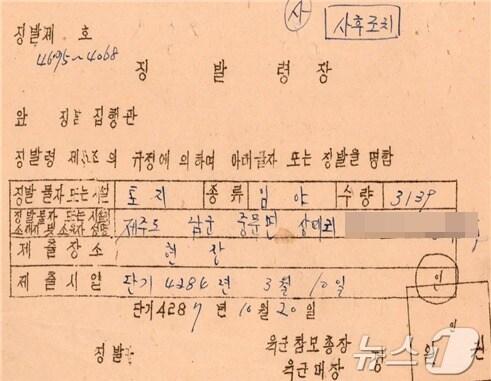 징발제 호 사 사후조치
4695~4068
징 발 령 장
와 징발 집행관
징발령 제 조의 규정에 의하여 아래물자 또는 징발을 명함
징발 물자 또는 시설 토지 종류 임야 수량 3139
징발물자 또는 시설 소재지 및 소유자 성명 제주도 남군 중문면 상예리
제출장소 현장
제출시일 단기 4286년 3월 10일 인
단기 4287년 10월 20일
징발 육군참모총장
육군대장 정 일 권
인
뉴스1